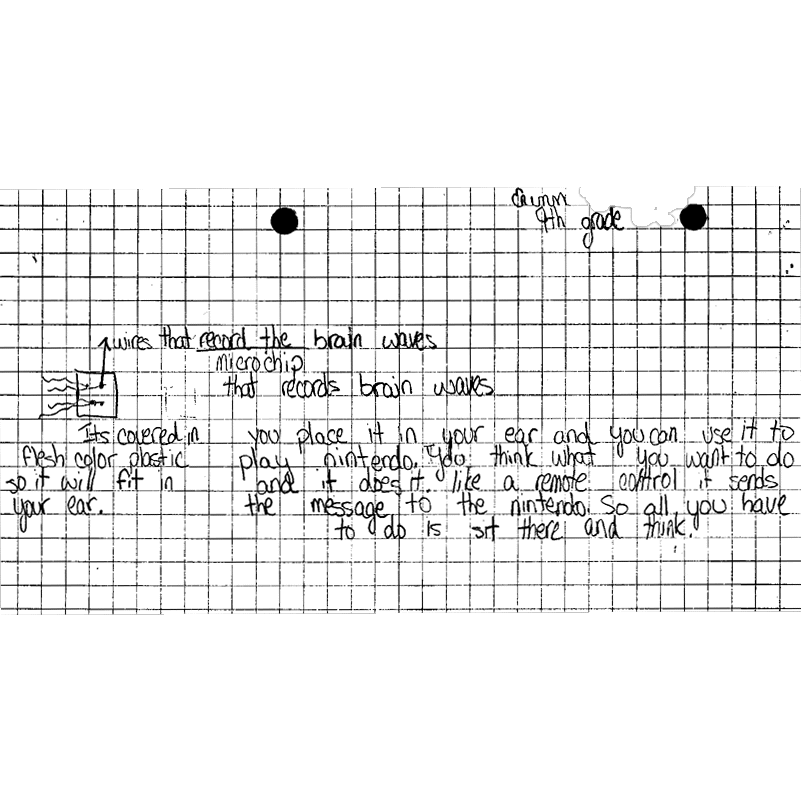 9th grade
wires that record the brain waves
microchip
that records brain waves
Its covered in
flesh color plastic
so it will fit in
your ear.
you place it in your ear and you can use it to
play nintendo. You think what you want to do
and it does it. like a remote control it sends
the message to the nintendo. So all you have
to do is sit there and think.